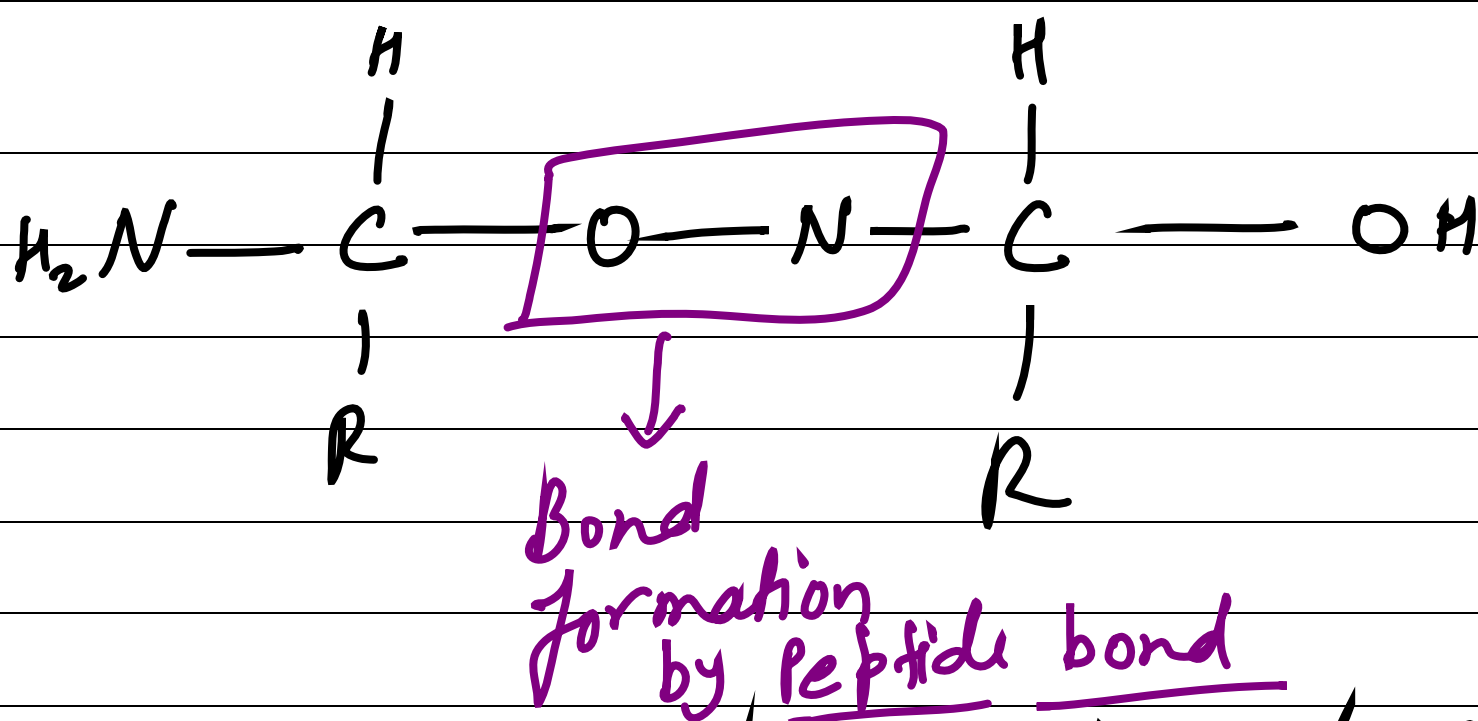 H H
H₂N — C — O — N — C — OH
R R
Bond
formation
by Peptide bond